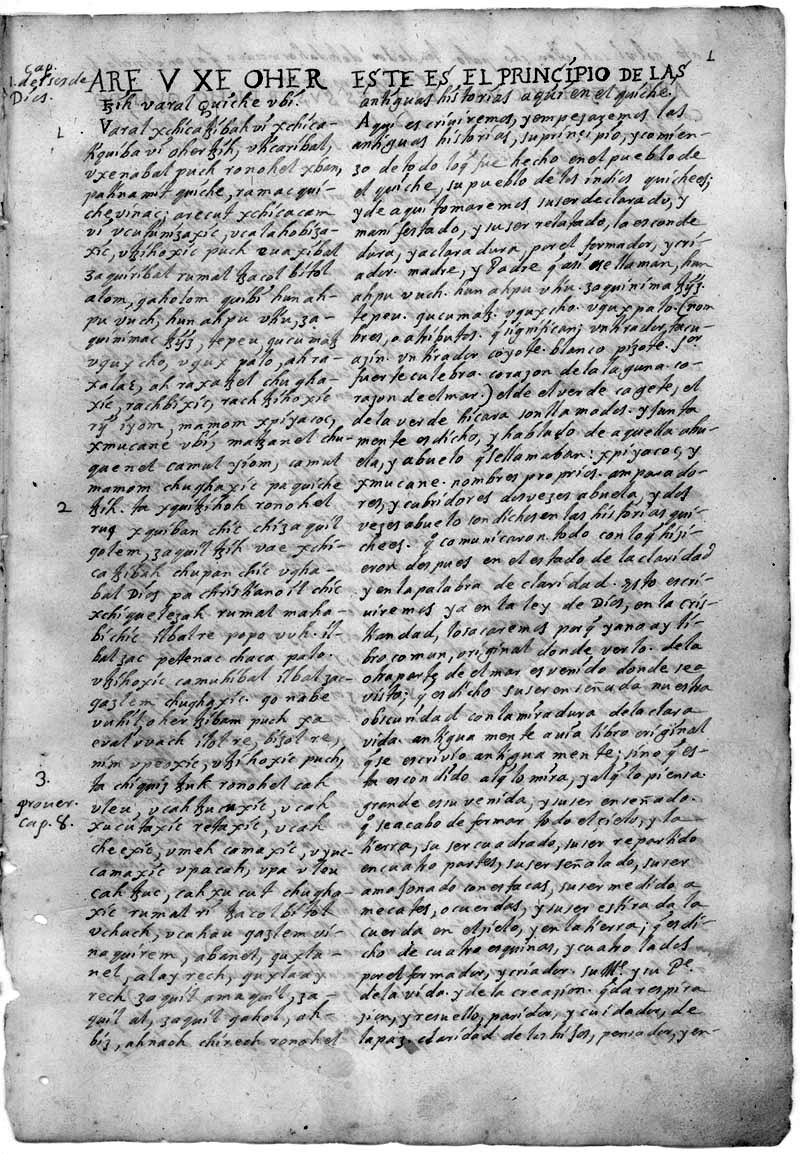 1
cap.
1. del ser de
Dios.
ARE V XE OHER
tzíh varal Quíche vbí.
1
Varal xchícatzíbah ví xchíca-
tíquíba ví oher tzíh, vtícaríbal,
vxenabal puch ronohel xban,
pa tínamít quíche, ramac quí-
che vínac; arecut xchícacam
ví vcutunízaxíc, vcalahobíza-
xíc, vtzíhoxíc puch euaxíbal
zaquíríbal rumal tzacol bítol
alom, qaholom quíbí hun ah-
pu vuch, hun ahpu vtíu, za-
quínímac tzýz, tepeu, qucumatz
vqux cho, vqux palo, ah ra-
xa la3, ah raxa tzel chugha-
xíc, rachbíxíc, rach tzíhoxíc
rý íyom, mamom xpíyacoc,
xmucane vbí, matzanel chu-
quenel camul yíom, camul
mamom chughaxíc pa quíche
2
tzíh. ta xquítzíhoh ronohel
ruq xquíban chíc chí zaquíl
qolem, zaquíl tzíh vae xchí-
catzíbah chupan chíc vgha-
bal Díos pa chrístíanoíl chíc
xchíquelezah rumal maha-
bíchíc ílbal re popo vuh. íl-
bal zac petenac chaca palo.
vtzíhoxíc camuhíbal ílbal zac
qazlem chughaxíc. qo nabe
vuhíl oher tzíbam puch xa
eval vvach ílol re, bízol re,
ním vpeoxíc, vtzíhoxíc puch,
3.
prouer.
cap. 8.
ta chíquíz tzuk ronohel cah
vleu, vcah tzucuxíc, vcah
xucutaxíc retaxíc, vcah
cheexíc, vmeh camaxíc, vyuc
camaxíc vpa cah, vpa vleu
cah tzuc, cah xucut chugha-
xíc rumal rí tzacol bítol
vchuch, vcahau qazlem ví-
naquírem, abanel, quxla-
nel, alay rech, quxlaay
rech zaquíl amaquíl, za-
quíl al, zaquíl qahol, ah-
bíz, ahnaoh chírech ronohel
ESTE ES EL PRINCÍPIO DE LAS
antíguas hístorías aquí en el quíche.
Aquí escríuíremos, y empezaremos las
antíguas hístorías, su prínzípío, y comíen-
zo de todo lo q̃ fue hecho en el pueblo de
el quíche, su pueblo de los índíos quíchees;
y de aquí tomaremos su ser declarado, y
manífestado, y su ser relatado, la esconde
dura, y aclaradura, por el formador, y crí-
ador. madre, y Padre q̃ así se llaman, hun
ahpu vuch. hun ahpu vtíu. zaquínímatzýz.
tepeu. qucumatz. vqux cho. vqux palo. (nom
bres, o atríbutos. q̃ sígnífícan; vn tírador, tacu-
azín. vn tírador coyote. blanco pízote. Sor
fuerte culebra. corazon de la laguna. co-
razon de el mar.) el de el verde cagete, el
de la verde hícara son llamados. y junta
mente es dícho, y hablado de aquella abu-
ela, y abuelo q̃ se llamaban: xpíyacoc, y
xmucane. nombres propríos. amparado-
res, y cubrídores dos vezes abuela, y dos
vezes abuelo son díchos en las hístorías quí-
chees. q̃ comunícaron todo con lo q̃ hízí-
eron despues en el estado de la clarídad
y en la palabra de clarídad. Esto escrí-
uíremos ya en la ley de Díos, en la crís-
tíandad, lo sacaremos por q̃ ya no ay lí-
bro comun, orígínal donde verlo. de la
otra parte de el mar es venído donde sea
vísto; q̃ es dícho su ser enseñada nuestra
obscurídad con la míradura de la clara
vída. antíguamente auía líbro orígínal
q̃ se escríuío antíguamente; síno q̃ es-
ta escondído al q̃ lo míra, y al q̃ lo píensa.
grande es su venída, y su ser enseñado.
q̃ se acabo de formar todo el zíelo, y la
tíerra, su ser cuadrado, su ser repartído
en cuatro partes, su ser señalado, su ser
amojonado con estacas, su ser medído a
mecates, o cuerdas, y su ser estírada la
cuerda en el zíelo, y en la tíerra; q̃ es dí-
cho de cuatro esquínas, y cuatro lados
por el formador, y críador. su Mᵉ. y su Pᵉ.
de la vída. y de la creazíon. q̃ da respíra
zíon, y resuello, parídor, y cuídador, de
la paz. clarídad de los híjos, pensador, y en-